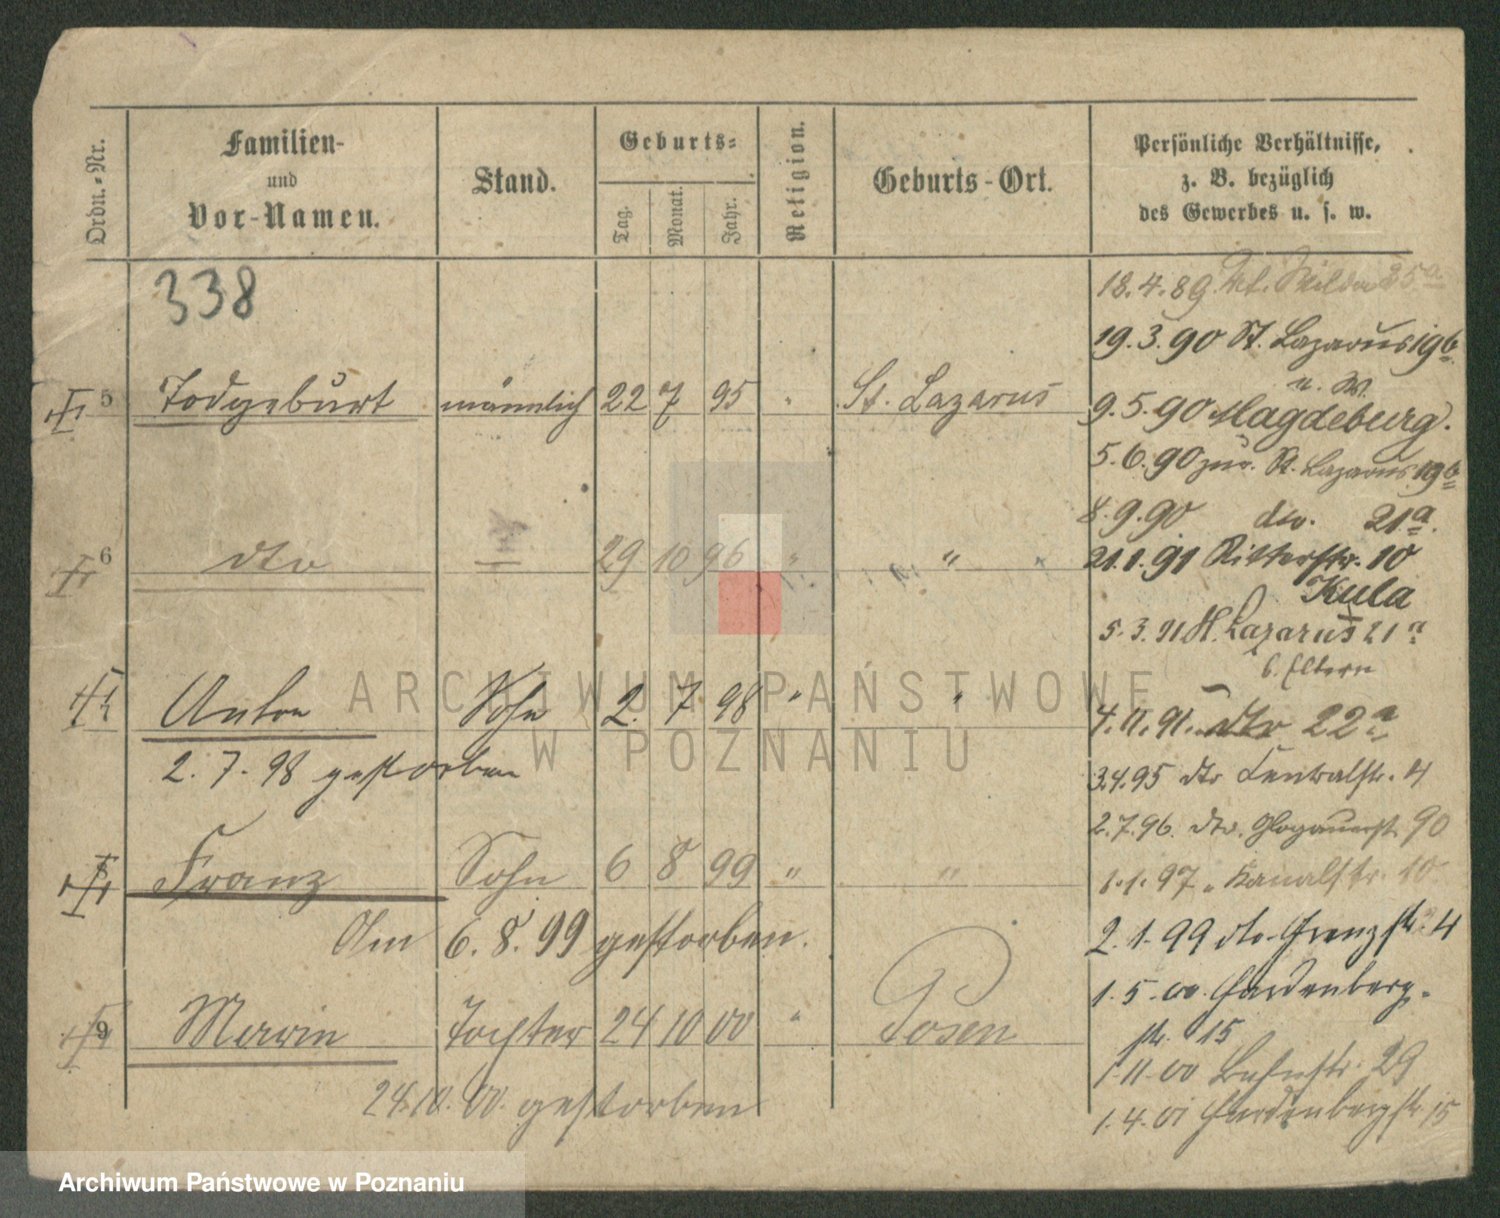 Ordn.-Nr.
Familien-
und
Vor-Namen.
Stand.
Geburts-
Tag.
Monat.
Jahr.
Religion.
Geburts-Ort.
Persönliche Verhältnisse,
z. B. bezüglich
des Gewerbes u. s. w.
338
18.4.89 Wilda 25a
19.3.90 St. Lazarus 19b
u. W.
9.5.90 Magdeburg.
5 Todgeburt männlich 22 7 95 " St. Lazarus
5.6.90 zur. St. Lazarus 19b
8.9.90 dto. 21a.
6 dto = 29 10 96 " "
21.1.91 Ritterstr. 10
Kula
5.3.91 St. Lazarus 21a
b. Eltern
Anton Sohn 2. 7 98 " "
4.11.91. dto 22a
2.7.98 gestorben
3.4.95 dto Centralstr. 4
2.7.96. dto. Glogauerst. 90
Franz Sohn 6 8 99 " "
1.1.97 " Kanalstr. 10
Am 6.8.99 gestorben.
2.1.99 dto. Grenzstr. 4
1.5.00. Hardenberg-
str. 15
9 Marie Tochter 24 10 00 " Posen
1.11.00 29
24.10.00. gestorben
1.4.01 Hardenbergstr 15
ARCHIWUM PAŃSTWOWE
W POZNANIU
Archiwum Państwowe w Poznaniu